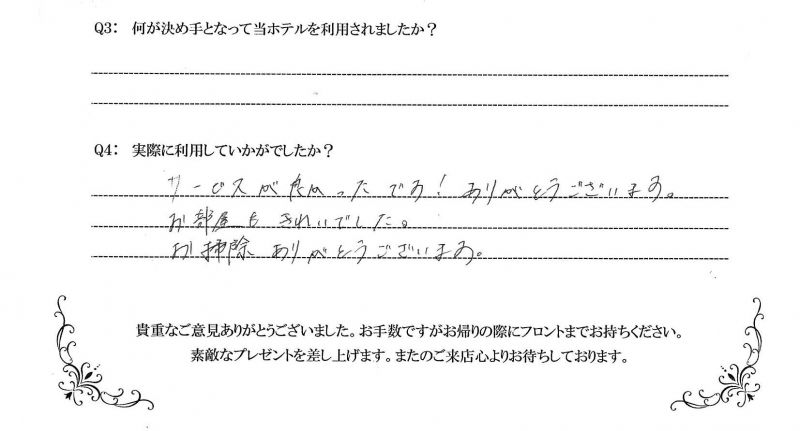 Q3: 何が決め手となって当ホテルを利用されましたか？
Q4: 実際に利用していかがでしたか？
サービスが良かったです！ありがとうございます。
お部屋もきれいでした。
お掃除ありがとうございます。
貴重なご意見ありがとうございました。お手数ですがお帰りの際にフロントまでお持ちください。
素敵なプレゼントを差し上げます。またのご来店心よりお待ちしております。